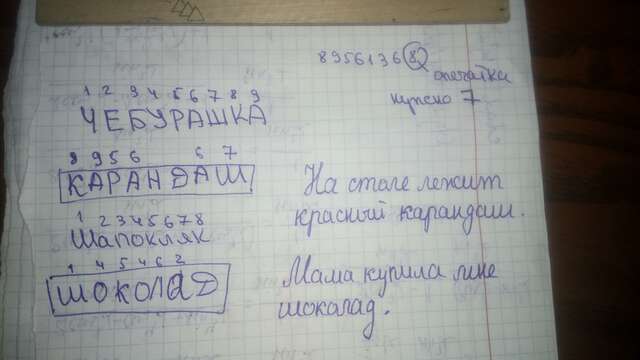 89561368
опечатка
нужно 7
1 2 3 4 5 6 7 8 9
ЧЕБУРАШКА
8 9 5 6 6 7
КАРАНДАШ
На столе лежит
красный карандаш.
1 2 3 4 5 6 7 8
Шапокляк
1 4 5 4 6 2
ШОКОЛАД
Мама купила мне
шоколад.